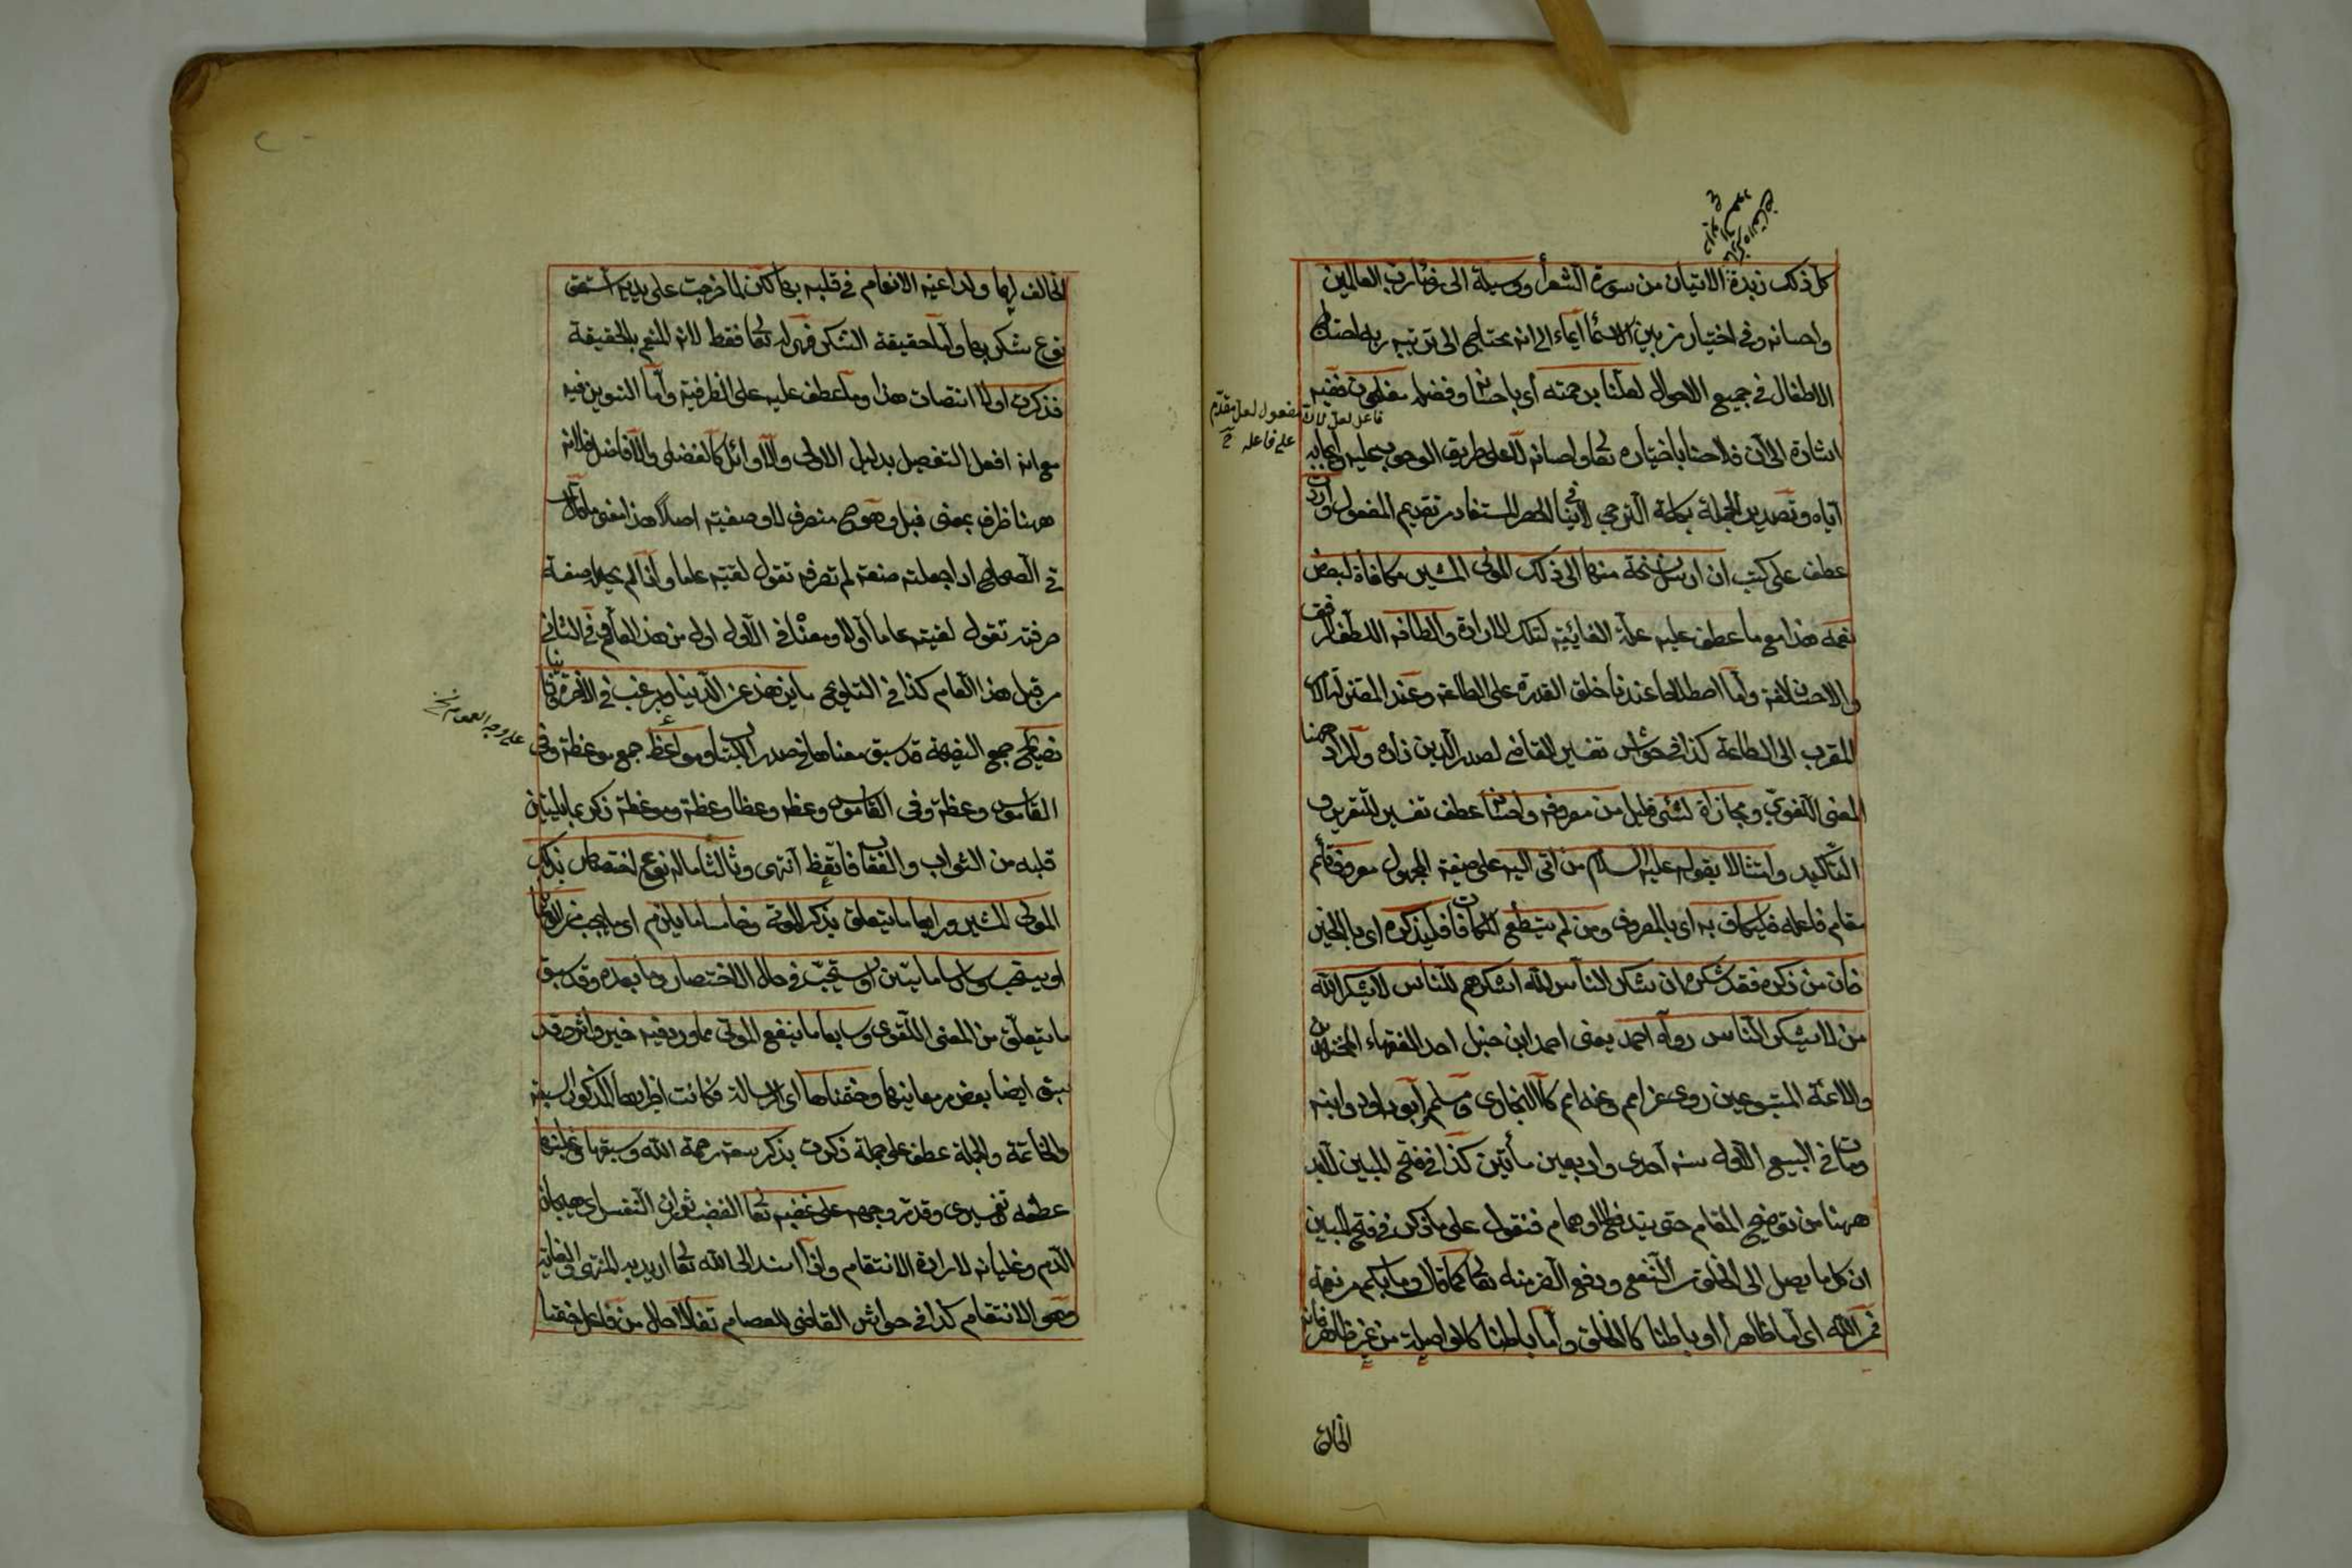 كل ذلك زبدة الاتيان من سورة الشعرأ وسيلة الى رب العالمين
واحسانه وفي اختيار من بين الاسمأ ايماء الى انه يحتاج الى تربية ربه احتياج
الاطفال في جميع الاحوال لعلنا برحمته أي باحسانه وفضله
اشارة الى ان فلاحنا باختياره تعا واحسانه لا على طريق الوجوب عليه
اياه وتصدير الجملة بكلمة الترجي لا ينافي الحصر المستفاد من تقديم المفعول واردت
عطف على كتبت ان ارسل نسخة منها الى ذلك المولى المشير مكافاة لبعض
نعمه هذا مع ما عطف عليه علة الغائية لتلك الارادة والطافه اللطف الرفق
والاحسان لغة وأما اصطلاحا عندنا خلق القدرة على الطاعة وعند المعتزلة
المقرب الى الطاعة كذا في حواشى تفسير القاضي لصدر الدين زاده والمراد ههنا
المعنى اللغوي ومجازاة لشئ قليل من معروفه واحسانه عطف تفسير للتقرير و
التأكيد وامتثالا بقوله عليه السلام من اتى اليه على صيغة المجهول معروف قائم
مقام فاعله فليكاف به اى بالمعروف ومن لم يستطع المكافات فليذكره اى بالخير
فان من ذكره فقد شكره ان شكر الناس لله اشكرهم للناس لا يشكر الله
من لا يشكر الناس رواه احمد يعنى احمد ابن حنبل احد الفقهاء المجتهدين
والائمة المتبوعين روى عن امم وعنه امم كالبخارى ومسلم وابو داود وابنه
ومات في الربيع الاول سنة احدى واربعين مأتين كذا في فتح المبين لابد
ههنا من توضيح المقام حتى يندفع الاوهام فنقول على ما ذكر في فتح المبين
ان كل ما يصل الى الخلق من النفع ودفع الضر منه تعا كما قال وما بكم من نعمة
فمن الله اى اما ظاهرا او باطنا كالخلق وأما باطنا كالواصلة من غير ظاهر فانه
الخالق
فاعل لعل
مفعول لعل مقدم
على فاعله
الخالق لها ولداعية الانعام في قلبه بها لكن لما خرجت على يديه استحق
نوع شكر بها وأما حقيقة الشكر فهى له تعا فقط لانه المنعم بالحقيقة
فذكرت اولا انتصاب هذا وما عطف عليه على الظرفية وأما التنوين فيه
مع انه افعل التفضيل بدليل الاولى والاوائل كالفضلى والافاضل فلانه
ههنا ظرف بمعنى قبل وهو ح منصرف لا وصفية اصلا هذا معنى ما قال
في الصحاح اذا جعلته صفة لم تصرفه تقول لقيته عاما واذا لم تجعله صفة
صرفته تقول لقيته عاما أولا ومعناه في الاول اول من هذا العام وفي الثاني
من قبل هذا العام كذا في التلويح ما يزهد عن الدنيا ويرغب في الآخرة
نصايح جمع النصيحة قد سبق معناها في صدر الكتاب ومواعظ جمع موعظة وفي
القاموس وعظة وفي القاموس وعظه وعظا وعظة وموعظة ذكره بما يلين
قلبه من الثواب والعقاب فاتعظ انتهى وثالثا ماله نوع اختصاص بذلك
المولى المشير ورابعا ما يتعلق بذكر الموت وخامسا ما يلزم اى ما يجب
او يستحب وسادسا ما يتبين او يستحب في حال الاختصار وما بعده وقد سبق
ما يتعلق من المعنى اللغوى وسابعا ما ينفع الموتى مما ورد فيه خبر واثر وقد
سبق ايضا بعض من معانيها وختمناها اى الرسالة
والخاتمة والجملة عطف على جملة ذكرت بذكر سعة رحمة الله وسبقها وغلبتها
عطفه تفسيرى وقد مر وجهه على غضبه تعا الغضب ثوران النفس اى هيجان
الدم وغليانه لارادة الانتقام واذا اسند الى الله تعا اريد به المنتهى والغاية
وهى الانتقام كذا في حواشى القاضى للعصام تفالا حال من فاعل ختمنا